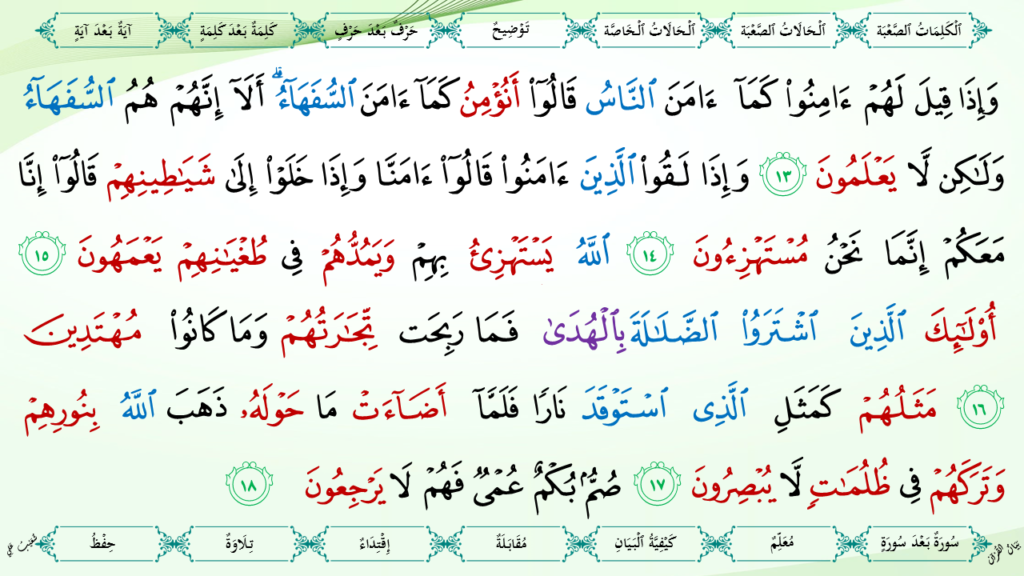 ٱلْكَلِمَاتُ ٱلصَّعْبَة ٱلْحَالَاتُ ٱلصَّعْبَة ٱلْحَالَاتُ ٱلْخَاصَّة تَوْضِيحٌ حَرْفٌ بَعْدَ حَرْفٍ كَلِمَةٌ بَعْدَ كَلِمَةٍ آيَةٌ بَعْدَ آيَةٍ
وَإِذَا قِيلَ لَهُمْ ءَامِنُوا۟ كَمَآ ءَامَنَ ٱلنَّاسُ قَالُوٓا۟ أَنُؤْمِنُ كَمَآ ءَامَنَ ٱلسُّفَهَآءُ ۗ أَلَآ إِنَّهُمْ هُمُ ٱلسُّفَهَآءُ
وَلَـٰكِن لَّا يَعْلَمُونَ ١٣ وَإِذَا لَقُوا۟ ٱلَّذِينَ ءَامَنُوا۟ قَالُوٓا۟ ءَامَنَّا وَإِذَا خَلَوْا۟ إِلَىٰ شَيَـٰطِينِهِمْ قَالُوٓا۟ إِنَّا
مَعَكُمْ إِنَّمَا نَحْنُ مُسْتَهْزِءُونَ ١٤ ٱللَّهُ يَسْتَهْزِئُ بِهِمْ وَيَمُدُّهُمْ فِى طُغْيَـٰنِهِمْ يَعْمَهُونَ ١٥
أُو۟لَـٰٓئِكَ ٱلَّذِينَ ٱشْتَرَوُا۟ ٱلضَّلَـٰلَةَ بِٱلْهُدَىٰ فَمَا رَبِحَت تِّجَـٰرَتُهُمْ وَمَا كَانُوا۟ مُهْتَدِينَ
١٦ مَثَلُهُمْ كَمَثَلِ ٱلَّذِى ٱسْتَوْقَدَ نَارًا فَلَمَّآ أَضَآءَتْ مَا حَوْلَهُۥ ذَهَبَ ٱللَّهُ بِنُورِهِمْ
وَتَرَكَهُمْ فِى ظُلُمَـٰتٍ لَّا يُبْصِرُونَ ١٧ صُمٌّۢ بُكْمٌ عُمْىٌ فَهُمْ لَا يَرْجِعُونَ ١٨
بَيَانُ القُرْآن سُورَةٌ بَعْدَ سُورَةٍ مُعَلِّمٌ كَيْفِيَّةُ ٱلْبَيَانِ مُقَابَلَةٌ إِقْتِدَاءٌ تِلَاوَةٌ حِفْظٌ